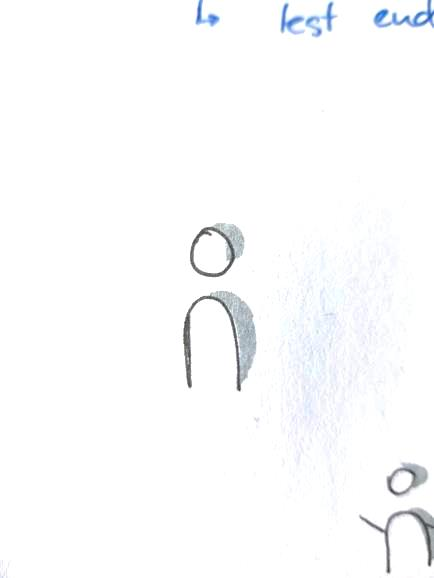 ↳ test end